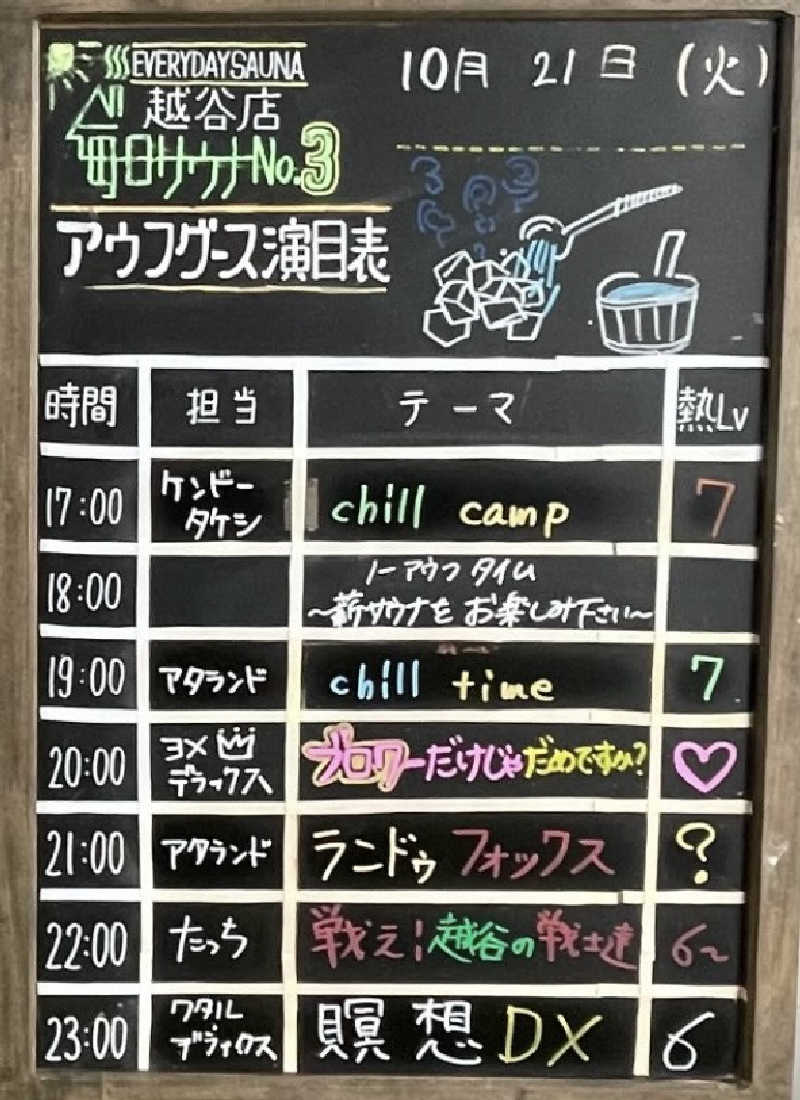 EVERYDAYSAUNA
10月 21日 (火)
越谷店
毎日サウナNo.3
アウフグース演目表
時間 担当 テーマ 熱Lv
17:00 ケンドー タケシ chill camp 7
18:00 ノーアウフタイム
~薪サウナをお楽しみ下さい~
19:00 アタランド chill time 7
20:00 ヨメ デラックス ブロワーだけじゃだめですか? ♡
21:00 アタランド ランドゥ フォックス ?
22:00 たっち 戦え!越谷の戦士達 6~
23:00 ワタル デラックス 瞑想DX 6